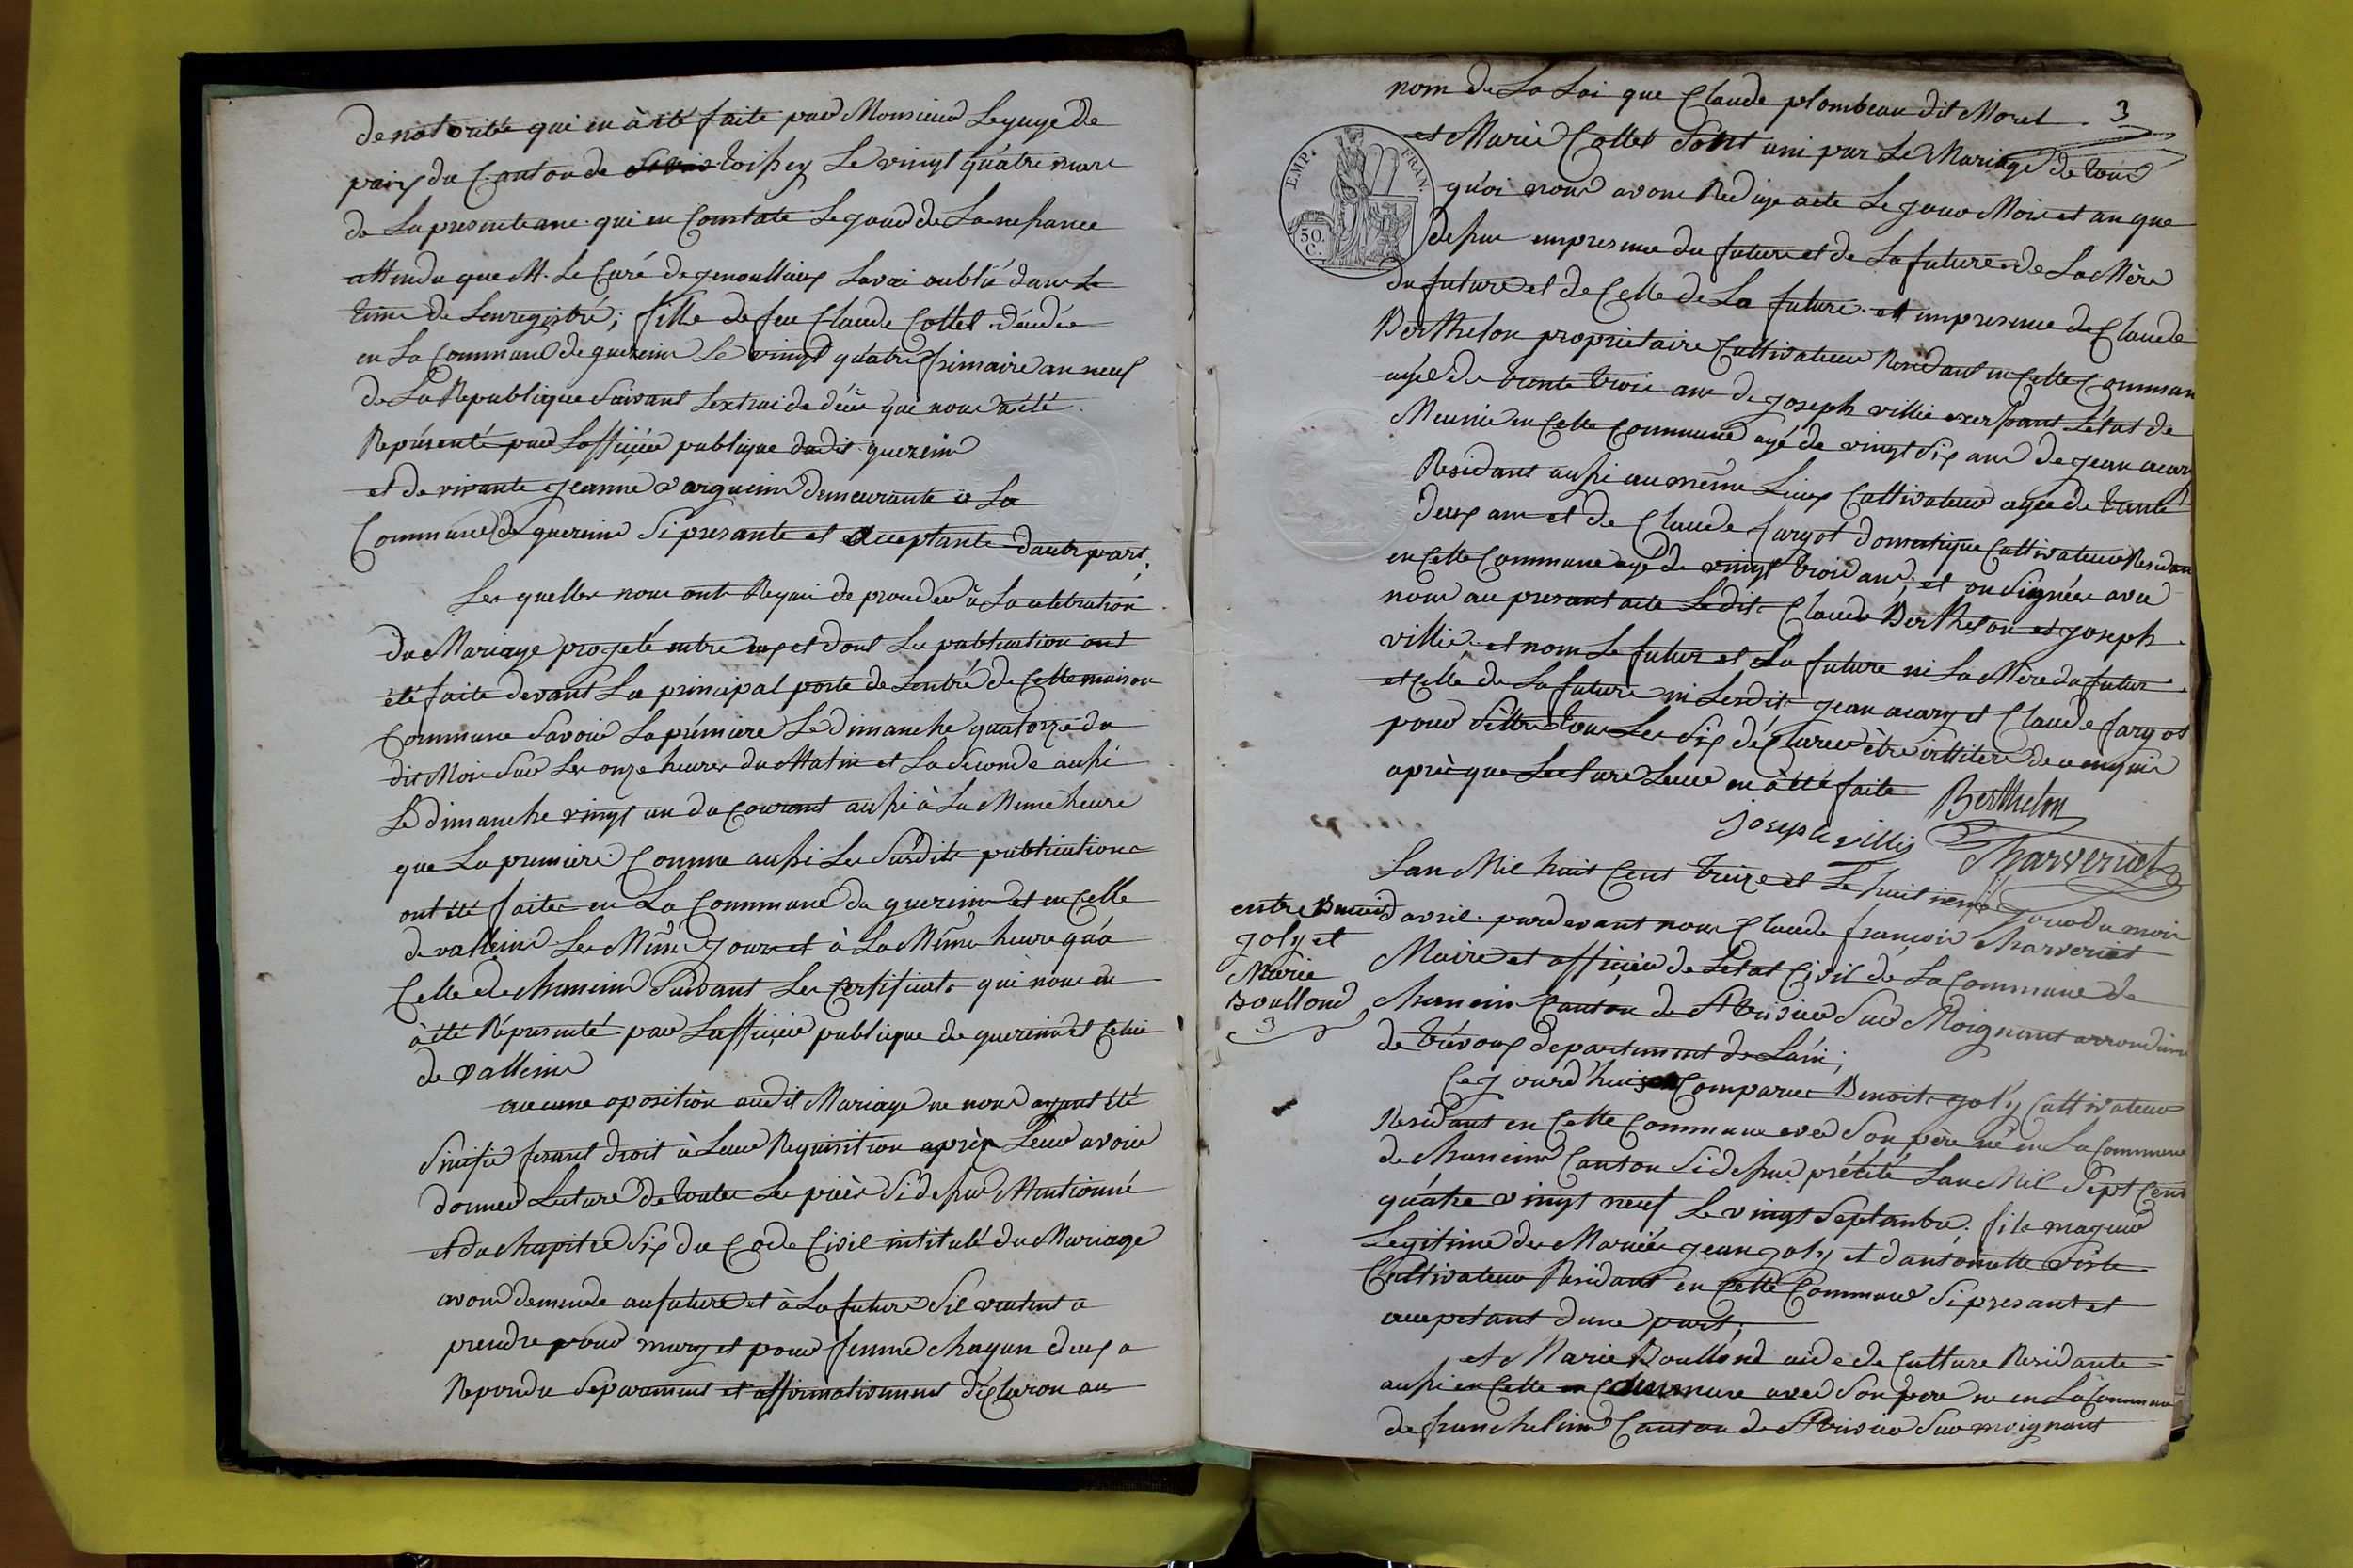 de notorité qui en à été faite par Monsieur Le juge de
paix du Canton de toissey Le vingt quatre mars
de La presente ane qui en Constate Le jour de La nessance
attendu que M. Le Curé de genoullieux Lavai oublié dans Le
tems de Lenregistré; fille de feu Claude Collet décédée
en La Commune de guereins Le vingt quatre frimaire an neuf
de La Republique Suivant Lextrai de décès que nous a été
Représenté par Lofficier publique dudit guereins
et de vivante jeanne varguin demeurante à La
Commune de guereins Si presante et acceptante dautre part;
Les quelles nous ont Requi de proceder à La celebration
du Mariage progeté entre eux et dont Les publication ont
été faite devant La principal porte de Lentré de Cette maison
Commune Savoir La premiere Le dimanche quatorze du
dit Mois Sur Les onze heures du Matin et La Seconde aussi
Le dimanche vingt un du Courant aussi à La Meme heure
que La premiere Comme aussi Les Susdite publication
ont été faites en La Commune de guereins et en Celle
de valleins Les Même jours et à La Même heure qu'à
Celle de chaneins Suivant Les Certificats qui nous en
à été Répresenté par Lofficier publique de guereins et Celui
de valleins
aucune oposition audit Mariage ne nous ayant été
Sinifié fesant droit à Leur Requisition après Leur avoir
donner Lecture de toutes Les pièces Si dessus Mentionné
et du chapitre Six du Code Civil intitulé du Mariage
avons demendé au future et à La future Sil veulent a
prendre pour mary et pour femme chaqun deux a
Repondu Separament et affirmativement déclaron au
nom de La Loi que Claude plombeau dit Moret 3
et Marie Collet Sont uni par Le Mariage de tous
EMP. FRAN.
50. C.
qu'oi nous avons Redigé acte Le jour Mois et an que
dessus enpresence du future et de La future de La Mère
du future et de Celle de La future et enpresence de Claude
Berthelon proprietaire Cultivateur Residant en Cette Commun
agé de trente trois ans de joseph villié exersant Létat de
Meunié en Cette Commune agé de vingt Six ans de jean acary
Residant aussi au même Lieux Cultivateur agée de trente
deux ans et de Claude fargot domestique Cultivateur Residan
en Cette Commune agé de vingt trois ans; et on Signées avec
nous au presant acte Ledit Claude Berthelon et joseph
villié et nom Le futur et La future ni La Mère du futur
et Celle de La future ni Lesdit jean acary et Claude fargot
pour Sêttre tous Les Six déclarer être illitéré de ce enquis
après que Lecture Leur en à été faite
Berthelon
joseph villié
Charveriat
Lan Mil huit Cens treize et Le huit jour du mois
entre Benoit
joly et
Marie
Boullond
davril pardevant nous Claude françois Charveriat
Maire et officier de Letat Civil de La Commune de
chaneins Canton de St trivier Sur Moignans arrondim
de trévoux departement de Lain;
Ce jourd'hui Comparu Benoit joly Cultivateur
Residant en Cette Commune avec Son père né en La Commune
de chaneins Canton Si dessus précité Lan Mil Sept Cens
quatre vingt neuf Le vingt Septembre fils mageur
Legitime des Mariés jean joly et dantoinette viste
Cultivateur Residant en Cette Commune Si presant et
acceptant dune part;
et Marie Boullond aide de Culture Residante
aussi en Cette Commune avec Son pere ne en La Commune
de francheleins Canton de St trivier Sur moignans